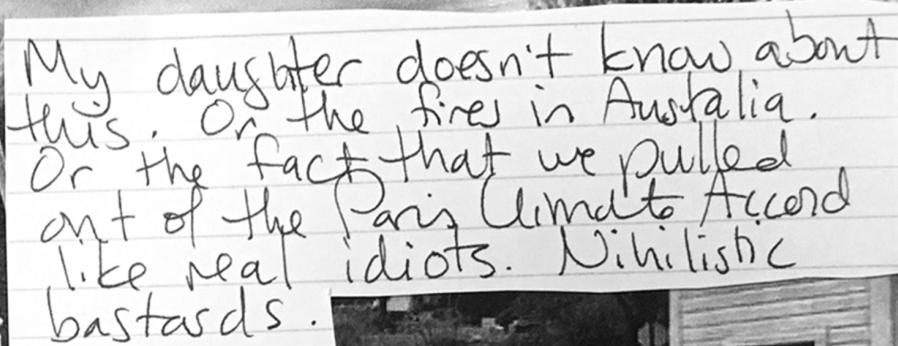 My daughter doesn't know about
this. Or the fires in Austalia.
Or the fact that we pulled
out of the Paris Climate Accord
like real idiots. Nihilistic
bastards.